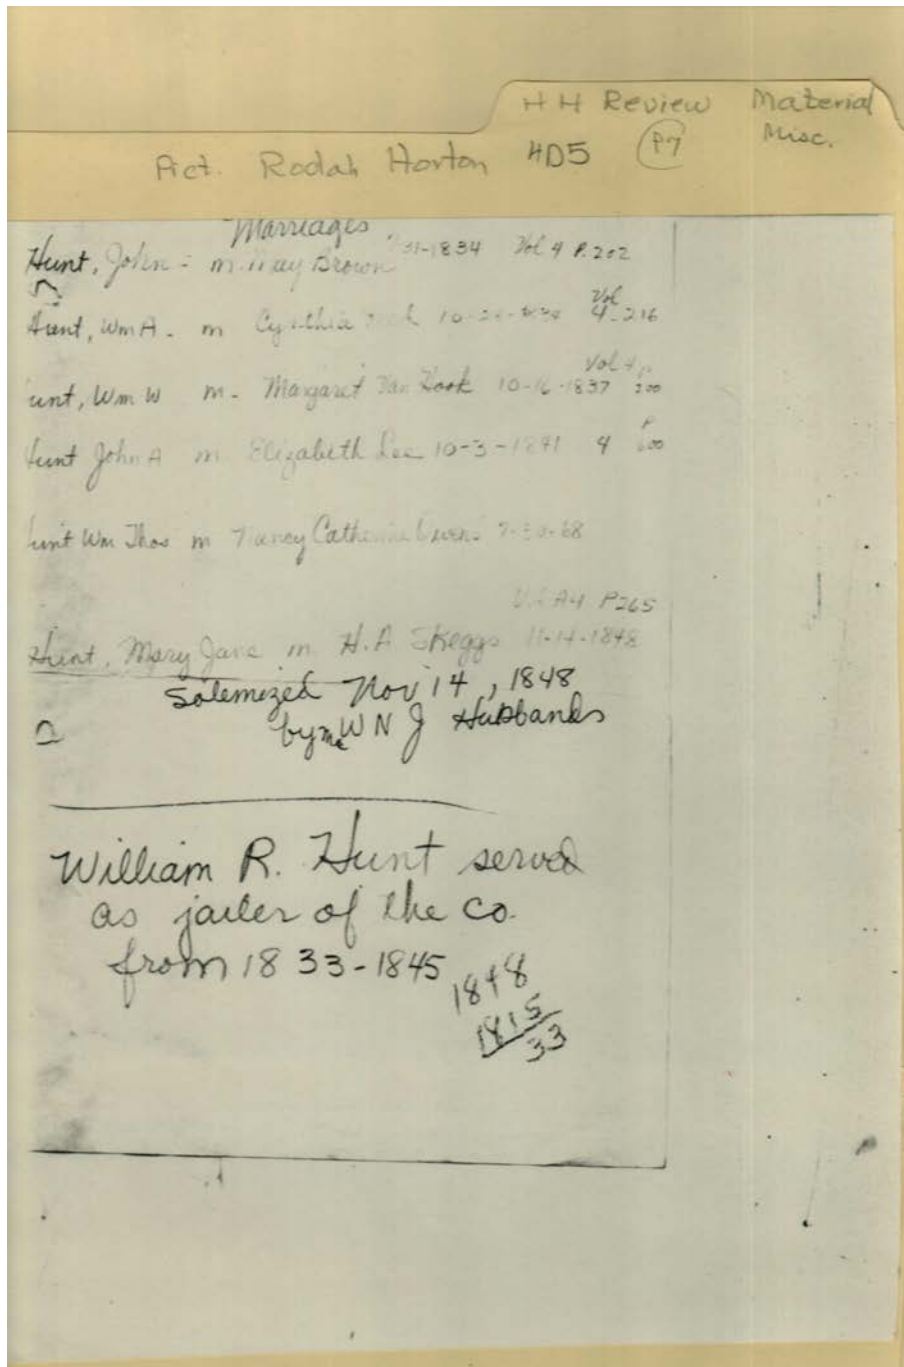 HH Review Material
Pict. Rodah Horton 4D5 P7 Misc.
Marriages
Hunt, John - m. May Brown 31-1834 Vol 4 P. 202
Vol
Hunt, Wm A - m Cynthia 10- 4-216
Vol 4 p
unt, Wm W m - Margaret Van Hook 10-16-1837 200
P
Hunt John A m Elizabeth Lee 10-3-1841 4 600
unt Wm Thos m Nancy Catherine Owens 7-30-68
Vol A4 P265
Hunt, Mary Jane m H. A Skeggs 11-14-1848
Solemized Nov 14, 1848
by me W N J Husbands
William R. Hunt served
as jailer of the co.
from 1833-1845
1848
1815
33